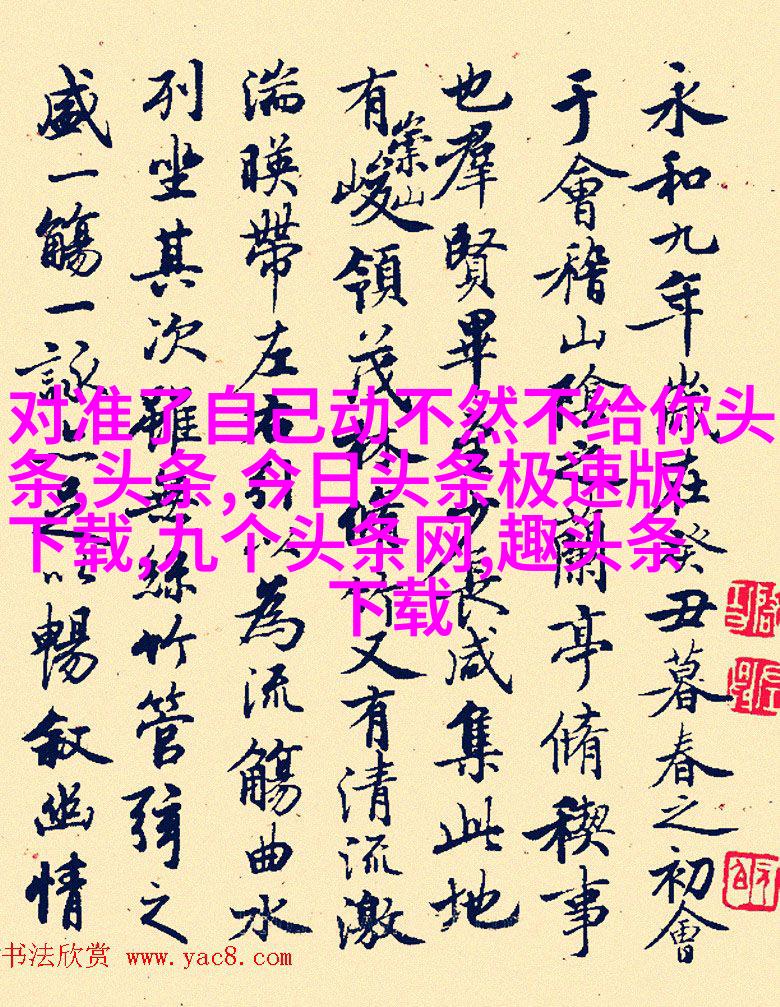 永和九年歲在癸丑暮春之初會
于會稽山陰之蘭亭脩稧事
也羣賢畢至少長咸集此地
有崇山峻領茂林脩竹又有清流激
湍暎帶左右引以為流觴曲水
列坐其次雖無絲竹管弦之
盛一觴一詠亦足以暢敘幽情
对准了自己动不然不给你头
条,头条,今日头条极速版
下载,九个头条网,趣头条
下载
书法欣赏 www.yac8.com